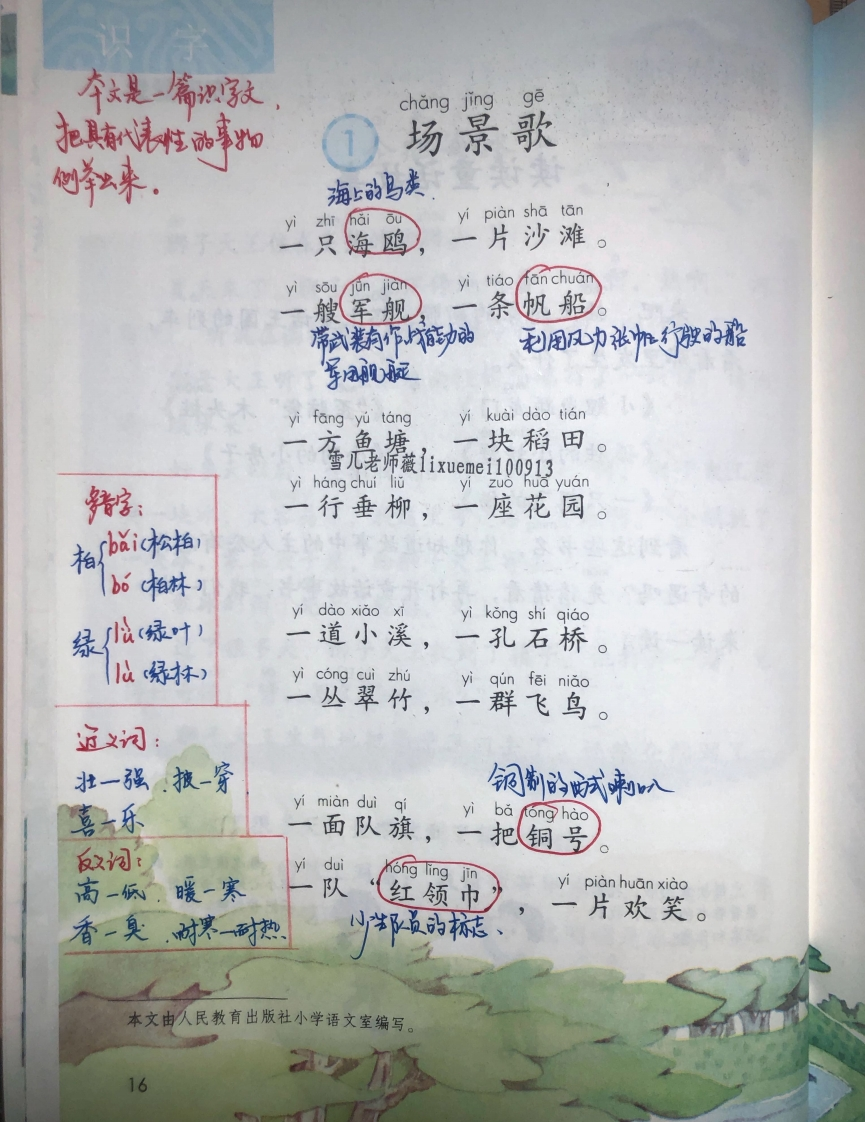 识字
本文是一篇识字文，
把具有代表性的事物
例举出来。
chǎng jǐng gē
1 场景歌
海上的鸟类
yì zhī hǎi ōu yí piàn shā tān
一只海鸥，一片沙滩。
yì sōu jūn jiàn yì tiáo fān chuán
一艘军舰，一条帆船。
带武装有作战能力的
军用舰艇
利用风力张帆行驶的船
yì fāng yú táng yí kuài dào tián
一方鱼塘，一块稻田。
雪儿老师薇lixuemei100913
yì háng chuí liǔ yí zuò huā yuán
一行垂柳，一座花园。
多音字：
柏 bǎi（松柏）
bó（柏林）
绿 lǜ（绿叶）
lù（绿林）
yí dào xiǎo xī yì kǒng shí qiáo
一道小溪，一孔石桥。
yì cóng cuì zhú yì qún fēi niǎo
一丛翠竹，一群飞鸟。
近义词：
壮—强、披—穿
喜—乐
铜制的西式喇叭
yí miàn duì qí yì bǎ tóng hào
一面队旗，一把铜号。
反义词：
高—低、暖—寒
香—臭、耐寒—耐热
yí duì hóng lǐng jīn yí piàn huān xiào
一队“红领巾”，一片欢笑。
少先队员的标志、
本文由人民教育出版社小学语文室编写。
16